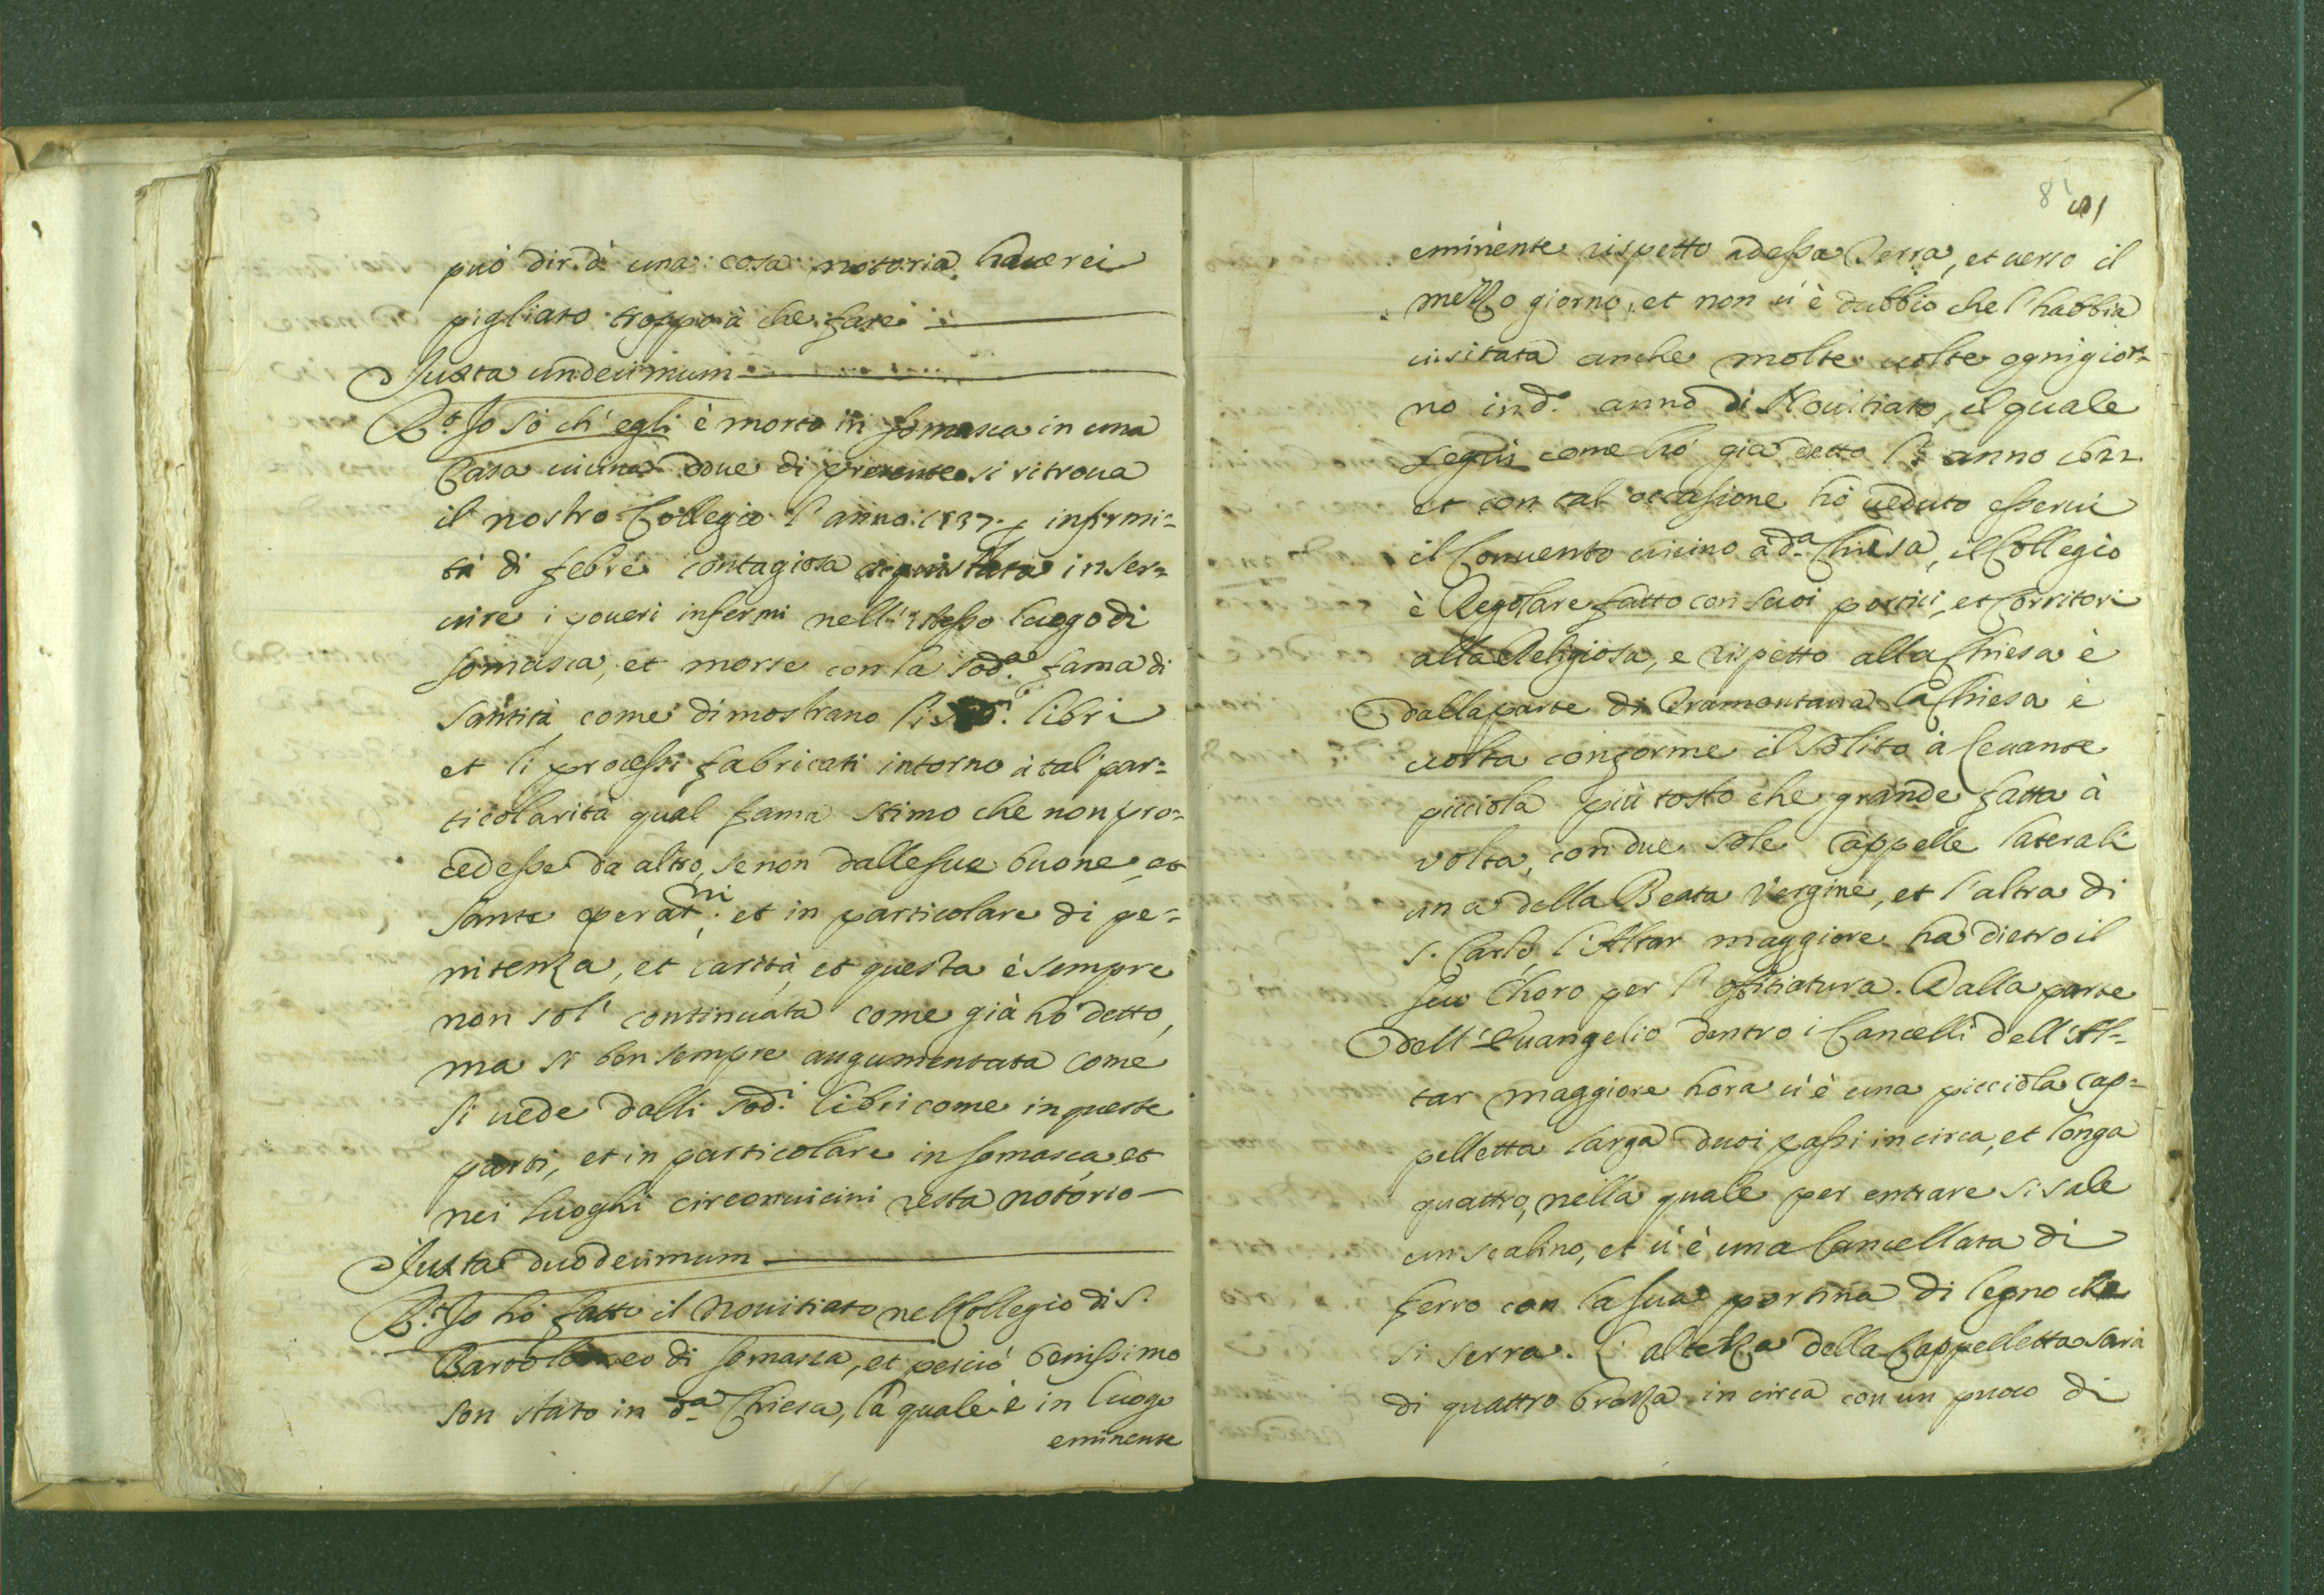 può dir d' una cosa notoria haverei
pigliato troppo à che fare
Juxta undecimum
R.t Jo sò ch' egli è morto in Somasca in una
Casa vicina dove di presente si ritrova
il nostro Collegio l' anno 1537. infirmi=
tà di febre contagiosa acquistata in ser=
vire i poveri infermi nell' istesso luogo di
Somasca, et morse con la sod.a fama di
Santità, come dimostrano li sod.i libri
et li processi fabricati intorno à tal par=
ticolarità qual fama stimo che non pro=
cedesse da altro, se non dalle sue buone, et
sante operat.ni et in particolare di pe=
nitenza, et carità, et questa è sempre
non sol' continuata come già hò detto,
ma si ben sempre augumentata come
si vede dalli sod.i libri come in queste
parti, et in particolare in Somasca, et
nei luoghi circonvicini resta notorio
Juxta duodecimum
R.t Jo hò fatto il Novitiato nel Collegio di S.
Bartolomeo di Somasca, et perciò benissimo
son stato in d.a Chiesa, la quale è in luogo
eminente
81
eminente rispetto ad essa Terra, et verso il
mezzo giorno, et non v' è dubbio che l' habbia
visitata anche molte volte ogni gior=
no in d.o anno di Novitiato, il quale
segui come hò già detto l' anno
et con tal occasione hò veduto esservi
il Convento vicino à d.a Chiesa, il Collegio
è Regolare fatto con suoi portici, et Corritori
alla Religiosa, e rispetto alla Chiesa è
dalla parte di Tramontana la Chiesa è
volta conforme il solito à Levante
picciola più tosto che grande fatta à
volta, con due sole Cappelle laterali
una della Beata Vergine, et l' altra di
S. Carlo, l' Altar maggiore ha dietro il
suo Choro per l' offitiatura. Dalla parte
dell' Evangelio dentro i Cancelli dell' Al=
tar maggiore hora v' è una picciola cap=
pelletta larga duoi passi in circa, et longa
quattro, nella quale per entrare si sale
un scalino, et v' è una Cancellata di
ferro con la sua portina di legno che
si serra. L' altezza della Cappelletta sarà
di quattro brazza in circa con un puoco di